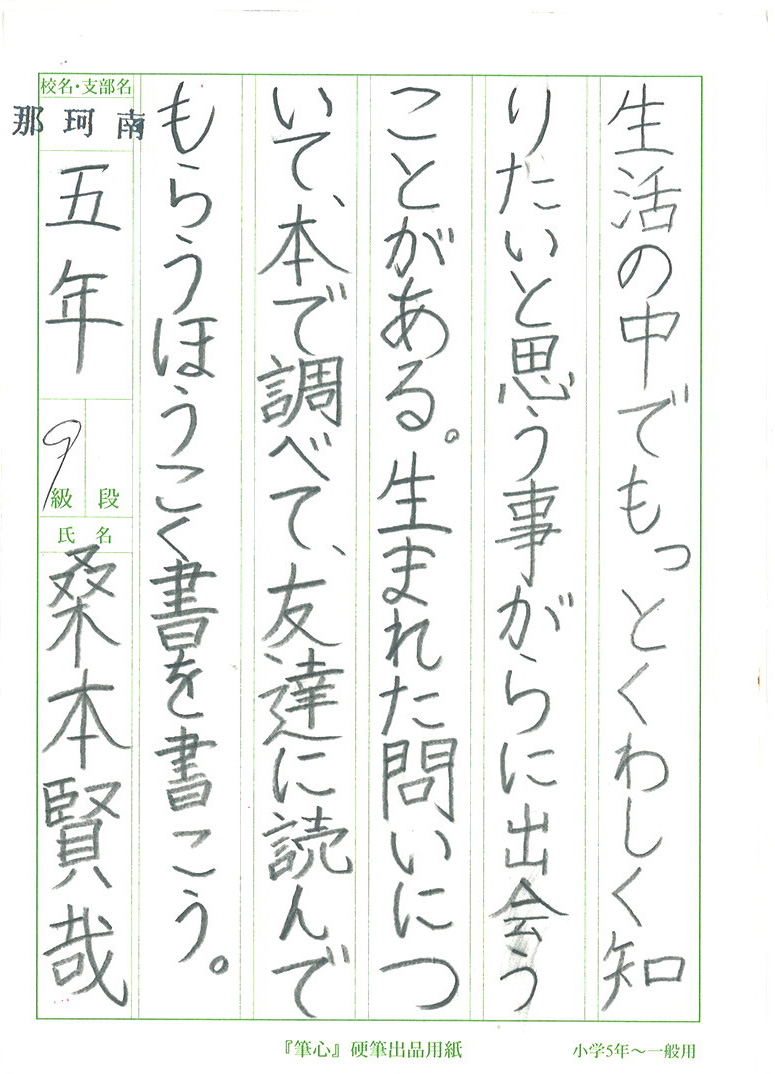 生活の中でもっとくわしく知
りたいと思う事がらに出会う
ことがある。生まれた問いにつ
いて、本で調べて、友達に読んで
もらうほうこく書を書こう。
校名・支部名
那珂南
五年
9
級 段
氏名
桑本賢哉
『筆心』硬筆出品用紙
小学5年～一般用